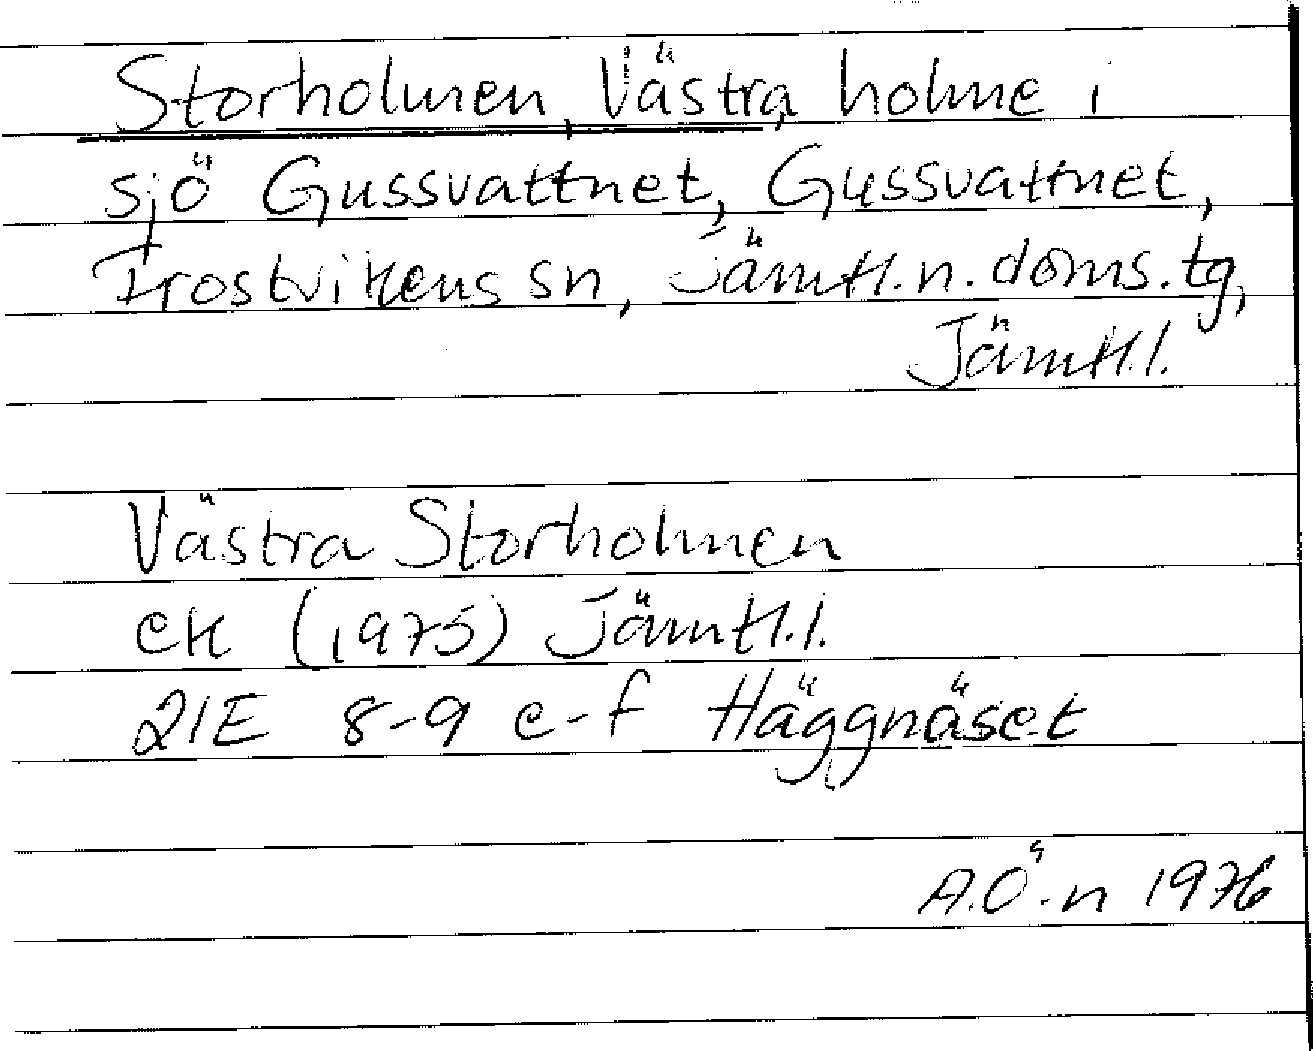 Storholmen, Västra, holme i
sjö Gussvattnet, Gussvattnet,
Frostvikens sn, Jämtl.n.doms.tg,
Jämtl.l.
Västra Storholmen
ek (1975) Jämtl.l.
21E 8-9 e-f Häggnäset
A.Ö-n 1976